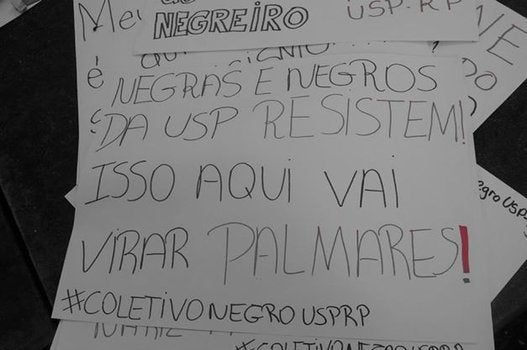 NEGREIRO
USP-RP
Me
É
NEGRAS E NEGROS
DA USP RESISTEM!
ISSO AQUI VAI
VIRAR PALMARES!
#COLETIVONEGROUSPRP
egro USP
#COLETIVONEGROUSPRP